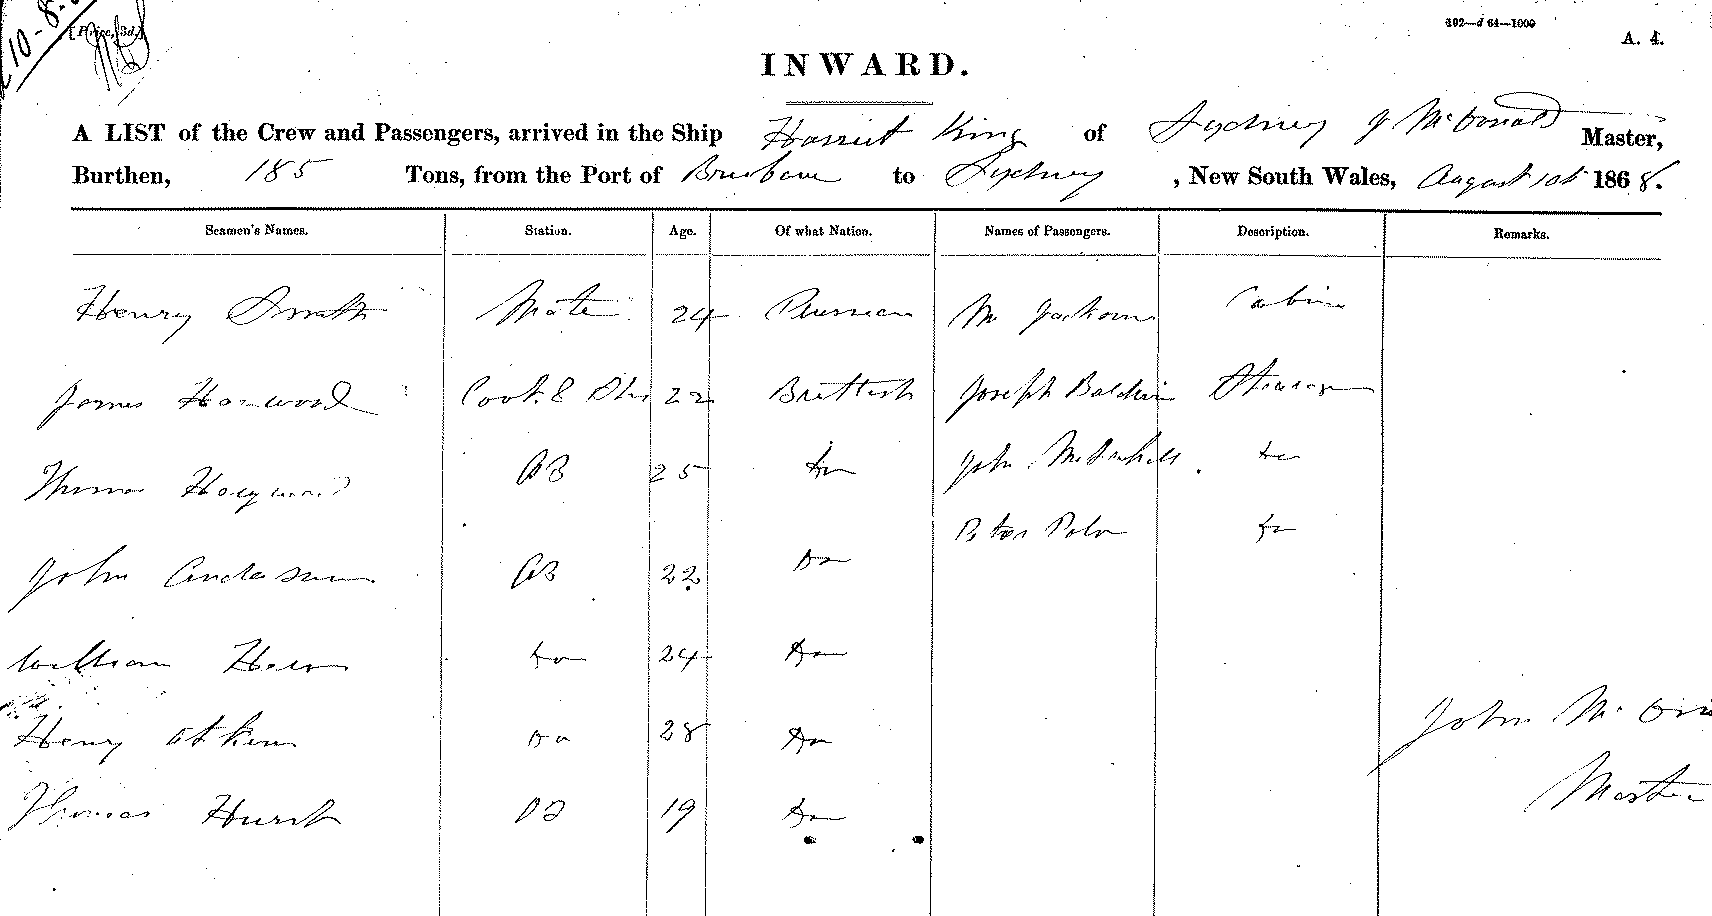 10-8-
[Price, 3d.]
102—d 64—1000
A. 4.
INWARD.
A LIST of the Crew and Passengers, arrived in the Ship Harriet King of Sydney J McDonald Master,
Burthen, 185 Tons, from the Port of Brisbane to Sydney, New South Wales, August 10th 1868.
Seamen's Names. Station. Age. Of what Nation. Names of Passengers. Description. Remarks.
Henry Smith Mate 24 Prussian Mr Jackson Cabin
James Harwood Cook & Std 22 Brittish Joseph Baldwin Steerage
Thomas Haywood AB 25 Do John Do
Peter Do
John Anderson AB 22 Do
William Do 24 Do
Henry Atkins Do 28 Do
Thomas Hurst OS 19 Do
John Mc
Master